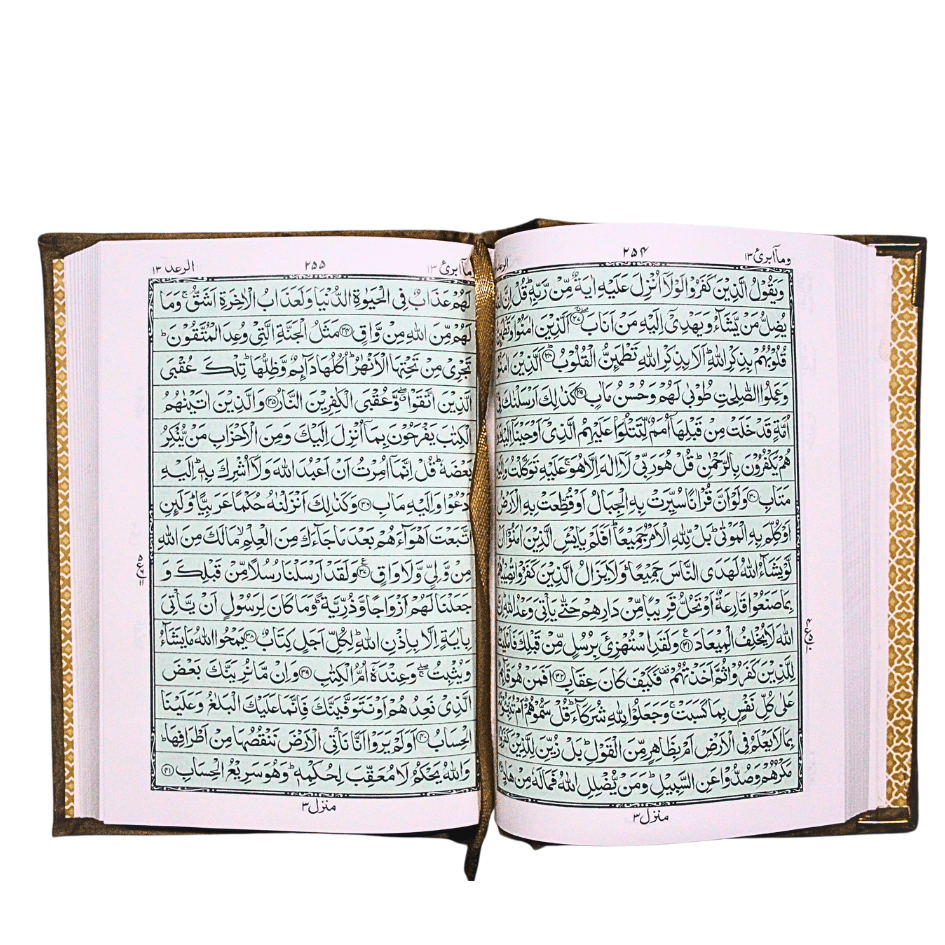 ومآ ابرئ ١٣
٢٥٤
الرعد
وَيَقُوْلُ الَّذِيْنَ كَفَرُوْا لَوْلَآ اُنْزِلَ عَلَيْهِ اٰيَةٌ مِّنْ رَّبِّهٖ ؕ قُلْ اِنَّ
يُضِلُّ مَنْ يَّشَآءُ وَيَهْدِيْٓ اِلَيْهِ مَنْ اَنَابَ ﴿٢٧﴾ اَلَّذِيْنَ اٰمَنُوْا
قُلُوْبُهُمْ بِذِكْرِ اللّٰهِ ؕ اَلَا بِذِكْرِ اللّٰهِ تَطْمَئِنُّ الْقُلُوْبُ ﴿٢٨﴾ اَلَّذِيْنَ
وَعَمِلُوا الصّٰلِحٰتِ طُوْبٰى لَهُمْ وَحُسْنُ مَاٰبٍ ﴿٢٩﴾ كَذٰلِكَ اَرْسَلْنٰكَ
اُمَّةٍ قَدْ خَلَتْ مِنْ قَبْلِهَآ اُمَمٌ لِّتَتْلُوَا۟ عَلَيْهِمُ الَّذِيْٓ اَوْحَيْنَآ
هُمْ يَكْفُرُوْنَ بِالرَّحْمٰنِ ؕ قُلْ هُوَ رَبِّيْ لَآ اِلٰهَ اِلَّا هُوَ ۚ عَلَيْهِ تَوَكَّلْتُ
مَتَابِ ﴿٣٠﴾ وَلَوْ اَنَّ قُرْاٰنًا سُيِّرَتْ بِهِ الْجِبَالُ اَوْ قُطِّعَتْ بِهِ
اَوْ كُلِّمَ بِهِ الْمَوْتٰى ؕ بَلْ لِّلّٰهِ الْاَمْرُ جَمِيْعًا ؕ اَفَلَمْ يَايْـَٔسِ الَّذِيْنَ اٰمَنُوْٓا
لَّوْ يَشَآءُ اللّٰهُ لَهَدَى النَّاسَ جَمِيْعًا ؕ وَلَا يَزَالُ الَّذِيْنَ كَفَرُوْا
بِمَا صَنَعُوْا قَارِعَةٌ اَوْ تَحُلُّ قَرِيْبًا مِّنْ دَارِهِمْ حَتّٰى يَاْتِيَ وَعْدُ اللّٰهِ
اللّٰهَ لَا يُخْلِفُ الْمِيْعَادَ ﴿٣١﴾ وَلَقَدِ اسْتُهْزِئَ بِرُسُلٍ مِّنْ قَبْلِكَ
لِلَّذِيْنَ كَفَرُوْا ثُمَّ اَخَذْتُهُمْ فَكَيْفَ كَانَ عِقَابِ ﴿٣٢﴾ اَفَمَنْ هُوَ
عَلٰى كُلِّ نَفْسٍۭ بِمَا كَسَبَتْ ۚ وَجَعَلُوْا لِلّٰهِ شُرَكَآءَ ؕ قُلْ سَمُّوْهُمْ ؕ
بِمَا لَا يَعْلَمُ فِي الْاَرْضِ اَمْ بِظَاهِرٍ مِّنَ الْقَوْلِ ؕ بَلْ زُيِّنَ لِلَّذِيْنَ
مَكْرُهُمْ وَصُدُّوْا عَنِ السَّبِيْلِ ؕ وَمَنْ يُّضْلِلِ اللّٰهُ فَمَا لَهٗ مِنْ
منزل ٣
ومآ ابرئ ١٣
٢٥٥
الرعد ١٣
لَهُمْ عَذَابٌ فِي الْحَيٰوةِ الدُّنْيَا وَلَعَذَابُ الْاٰخِرَةِ اَشَقُّ ۚ وَمَا
لَهُمْ مِّنَ اللّٰهِ مِنْ وَّاقٍ ﴿٣٤﴾ مَثَلُ الْجَنَّةِ الَّتِيْ وُعِدَ الْمُتَّقُوْنَ ؕ
تَجْرِيْ مِنْ تَحْتِهَا الْاَنْهٰرُ ؕ اُكُلُهَا دَآئِمٌ وَّظِلُّهَا ؕ تِلْكَ عُقْبَى
الَّذِيْنَ اتَّقَوْا ۖ وَّعُقْبَى الْكٰفِرِيْنَ النَّارُ ﴿٣٥﴾ وَالَّذِيْنَ اٰتَيْنٰهُمُ
الْكِتٰبَ يَفْرَحُوْنَ بِمَآ اُنْزِلَ اِلَيْكَ وَمِنَ الْاَحْزَابِ مَنْ يُّنْكِرُ
بَعْضَهٗ ؕ قُلْ اِنَّمَآ اُمِرْتُ اَنْ اَعْبُدَ اللّٰهَ وَلَآ اُشْرِكَ بِهٖ ؕ اِلَيْهِ
اَدْعُوْا وَاِلَيْهِ مَاٰبِ ﴿٣٦﴾ وَكَذٰلِكَ اَنْزَلْنٰهُ حُكْمًا عَرَبِيًّا ؕ وَلَئِنِ
اتَّبَعْتَ اَهْوَآءَهُمْ بَعْدَ مَا جَآءَكَ مِنَ الْعِلْمِ ۙ مَا لَكَ مِنَ اللّٰهِ
مِنْ وَّلِيٍّ وَّلَا وَاقٍ ﴿٣٧﴾ وَلَقَدْ اَرْسَلْنَا رُسُلًا مِّنْ قَبْلِكَ وَ
جَعَلْنَا لَهُمْ اَزْوَاجًا وَّذُرِّيَّةً ؕ وَمَا كَانَ لِرَسُوْلٍ اَنْ يَّاْتِيَ
بِاٰيَةٍ اِلَّا بِاِذْنِ اللّٰهِ ؕ لِكُلِّ اَجَلٍ كِتَابٌ ﴿٣٨﴾ يَمْحُوا اللّٰهُ مَا يَشَآءُ
وَيُثْبِتُ ۖ وَعِنْدَهٗٓ اُمُّ الْكِتٰبِ ﴿٣٩﴾ وَاِنْ مَّا نُرِيَنَّكَ بَعْضَ
الَّذِيْ نَعِدُهُمْ اَوْ نَتَوَفَّيَنَّكَ فَاِنَّمَا عَلَيْكَ الْبَلٰغُ وَعَلَيْنَا
الْحِسَابُ ﴿٤٠﴾ اَوَلَمْ يَرَوْا اَنَّا نَاْتِي الْاَرْضَ نَنْقُصُهَا مِنْ اَطْرَافِهَا ؕ
وَاللّٰهُ يَحْكُمُ لَا مُعَقِّبَ لِحُكْمِهٖ ؕ وَهُوَ سَرِيْعُ الْحِسَابِ ﴿٤١﴾
منزل ٣